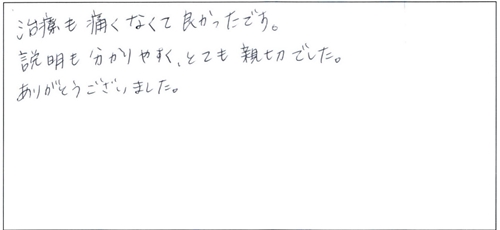 治療も痛くなくて良かったです。
説明も分かりやすく、とても親切でした。
ありがとうございました。